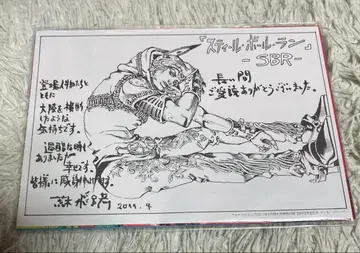 『スティール・ボール・ラン』
- SBR -
長い間
ご愛読ありがとうございました。
登場人物たちと
ともに
大陸を横断し
たような
気持ちです。
過酷な時も
ありましたが
幸せです。
皆様に感謝いたします。
荒木飛呂彦
2011. 4